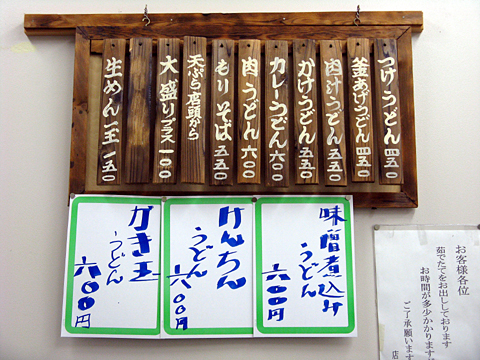 つけうどん 五五〇
釜あげうどん 五五〇
肉汁うどん 五五〇
かけうどん 五五〇
カレーうどん 六〇〇
肉うどん 六〇〇
もりそば 五五〇
天ぷら店頭から
大盛りプラス 一〇〇
生めん一玉 一五〇
味噌煮込み
うどん
六〇〇円
けんちん
うどん
六〇〇円
かき玉
うどん
六〇〇円
お客様各位
茹でたてをお出ししております
お時間が多少かかります
ご了承願います
店